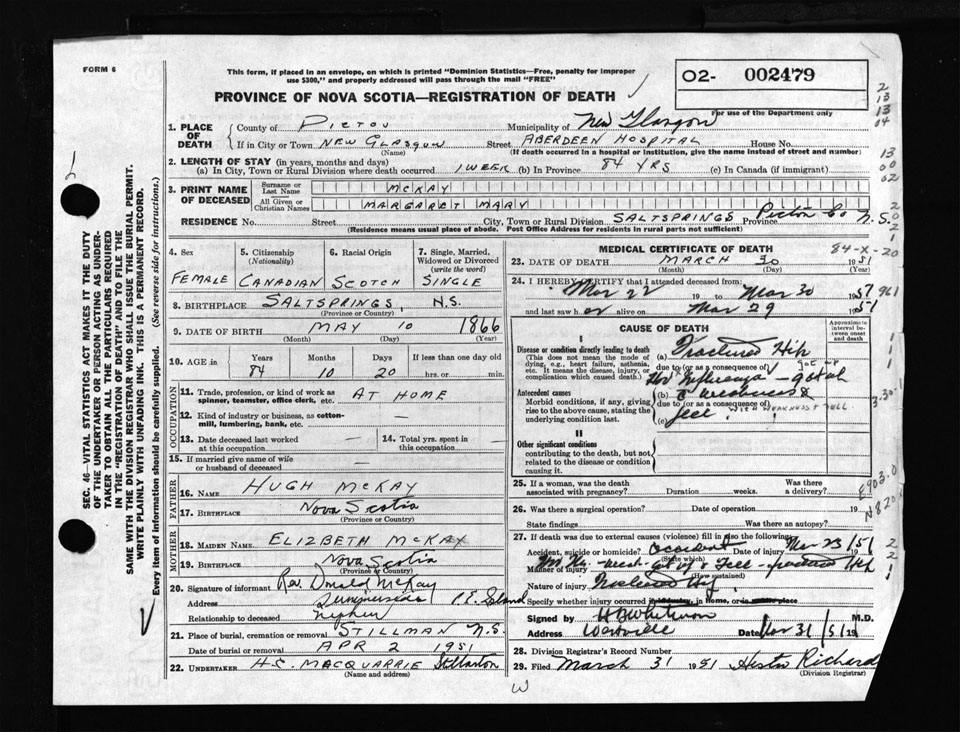 FORM 6
This form, if placed in an envelope, on which is printed "Dominion Statistics—Free, penalty for improper
use $300," and properly addressed will pass through the mail "FREE"
O2- 002479
For use of the Department only
PROVINCE OF NOVA SCOTIA—REGISTRATION OF DEATH
1. PLACE OF DEATH
County of PICTOU Municipality of New Glasgow
If in City or Town NEW GLASGOW (Name) Street ABERDEEN HOSPITAL House No.
(If death occurred in a hospital or institution, give the name instead of street and number)
2. LENGTH OF STAY (in years, months and days)
(a) In City, Town or Rural Division where death occurred 1 WEEK (b) In Province 84 YRS (c) In Canada (if immigrant)
3. PRINT NAME OF DECEASED
Surname or Last Name MCKAY
All Given or Christian Names MARGARET MARY
RESIDENCE No. Street City, Town or Rural Division SALTSPRINGS Province Pictou Co N.S.
(Residence means usual place of abode. Post Office Address for residents in rural parts not sufficient)
4. Sex FEMALE
5. Citizenship (Nationality) CANADIAN
6. Racial Origin SCOTCH
7. Single, Married, Widowed or Divorced (write the word) SINGLE
8. BIRTHPLACE SALTSPRINGS, N.S.
(Province or Country)
9. DATE OF BIRTH MAY 10 1866
(Month) (Day) (Year)
10. AGE in Years 84 Months 10 Days 20 If less than one day old hrs. or min.
OCCUPATION
11. Trade, profession, or kind of work as spinner, teamster, office clerk, etc. AT HOME
12. Kind of industry or business, as cotton-mill, lumbering, bank, etc. —
13. Date deceased last worked at this occupation —
14. Total yrs. spent in this occupation —
15. If married give name of wife or husband of deceased —
FATHER
16. NAME HUGH MCKAY
17. BIRTHPLACE Nova Scotia
(Province or Country)
MOTHER
18. MAIDEN NAME ELIZBETH MCKAY
19. BIRTHPLACE Nova Scotia
(Province or Country)
20. Signature of informant Rev. Donald McKay
Address P.E. Island
Relationship to deceased
21. Place of burial, cremation or removal STILLMAN N.S.
Date of burial or removal APR 2 1951
22. UNDERTAKER H.S. MACQUARRIE Stellarton
(Name and address)
MEDICAL CERTIFICATE OF DEATH
84-X-20
23. DATE OF DEATH MARCH 30 1951
(Month) (Day) (Year)
24. I HEREBY CERTIFY that I attended deceased from
Mar 22 19 to Mar 30 1951
and last saw her alive on Mar 29 1951
CAUSE OF DEATH
Approximate interval between onset and death
I
Disease or condition directly leading to death (a) Fractured Hip
(This does not mean the mode of dying, e.g., heart failure, asthenia, etc. It means the disease, injury, or complication which caused death.)
due to (or as a consequence of)
Antecedent causes (b)
Morbid conditions, if any, giving rise to the above cause, stating the underlying condition last.
due to (or as a consequence of)
(c) fell. WITH WEAKNESS & FELL
II
Other significant conditions
contributing to the death, but not related to the disease or condition causing it.
25. If a woman, was the death associated with pregnancy? Duration weeks. Was there a delivery?
26. Was there a surgical operation? Date of operation 19
State findings Was there an autopsy?
27. If death was due to external causes (violence) fill in also the following:
Accident, suicide or homicide? accident (State which) Date of injury Mar 23/51
Manner of injury (How sustained)
Nature of injury Fractured Hip
Specify whether injury occurred in industry, in home, or in public place
Signed by M.D.
Address Westville Date Mar 31/51 19
28. Division Registrar's Record Number
29. Filed March 31 1951 Hester Richard
(Division Registrar)
SEC. 46—VITAL STATISTICS ACT MAKES IT THE DUTY
OF THE UNDERTAKER OR PERSON ACTING AS UNDER-
TAKER TO OBTAIN ALL THE PARTICULARS REQUIRED
IN THE "REGISTRATION OF DEATH" AND TO FILE THE
SAME WITH THE DIVISION REGISTRAR WHO SHALL ISSUE THE BURIAL PERMIT.
WRITE PLAINLY WITH UNFADING INK. THIS IS A PERMANENT RECORD.
Every item of information should be carefully supplied. (See reverse side for instructions.)